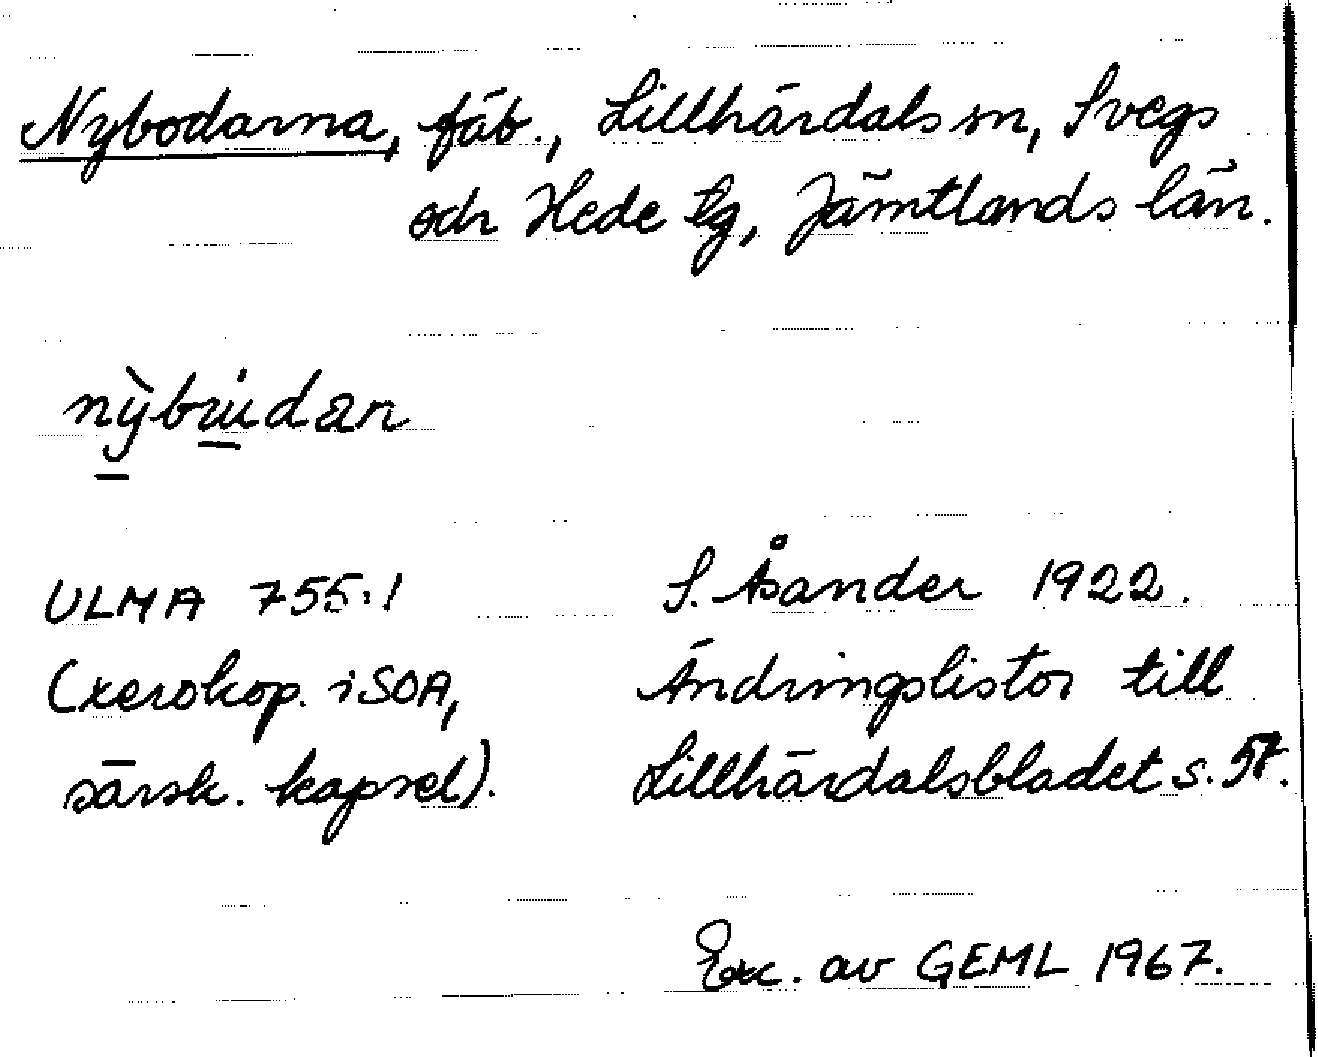 Nybodarna, fäb., Lillhärdals sn, Svegs
och Hede tg, Jämtlands län.
nỳbùdan
ULMA 755:1 S. Åsander 1922.
(xerokop. i SOA, Ändringslistor till
särsk. kapsel). Lillhärdalsbladet s. 57.
Exc. av GEML 1967.